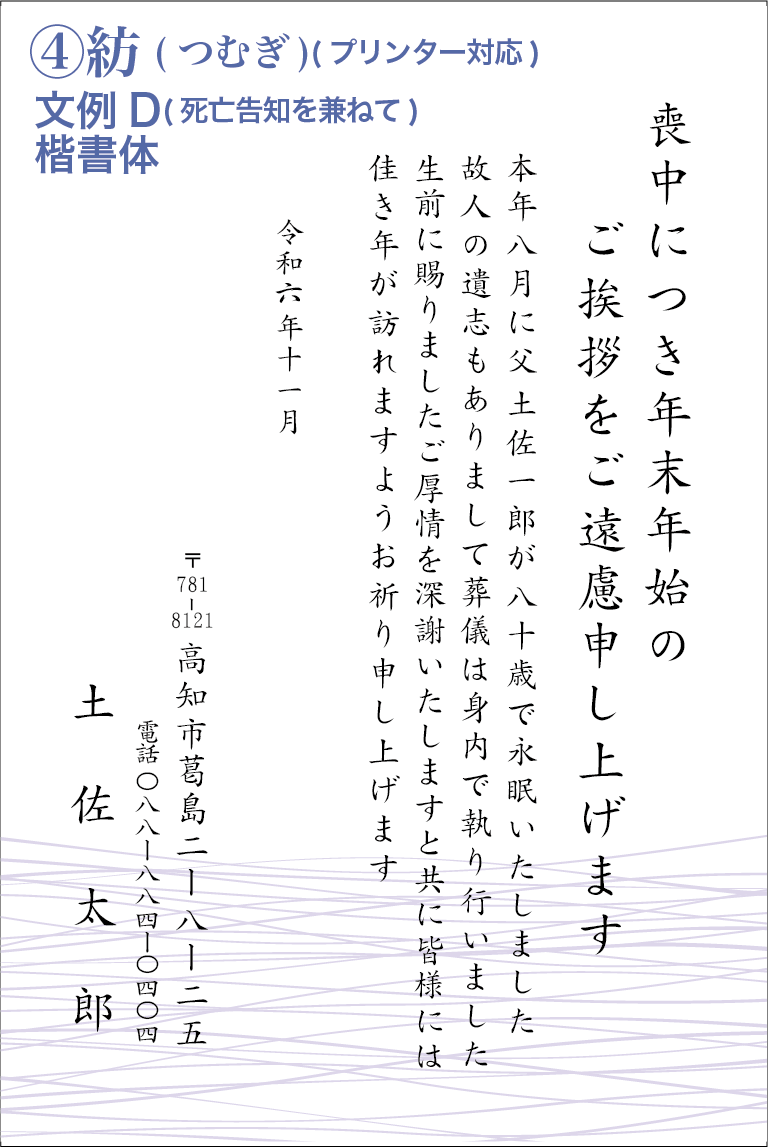 ④紡(つむぎ)(プリンター対応)
文例D(死亡告知を兼ねて)
楷書体
喪中につき年末年始の
ご挨拶をご遠慮申し上げます
本年八月に父 土佐一郎が八十歳で永眠いたしました
故人の遺志もありまして葬儀は身内で執り行いました
生前に賜りましたご厚情を深謝いたしますと共に皆様には
佳き年が訪れますようお祈り申し上げます
令和六年十一月
〒781-8121 高知市葛島二ー八ー二五
電話〇八八ー八八四ー〇四〇四
土佐太郎